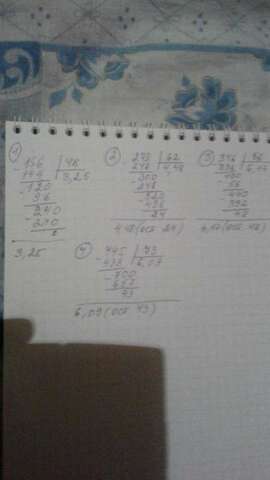 1
156 | 48
144 | 3,25
120
96
240
240
0
3,25
2
278 | 62
248 | 4,48
300
248
520
496
24
4,48 (ост 24)
3
346 | 56
336 | 6,17
100
56
440
392
48
6,17 (ост 48)
4
445 | 73
438 | 6,09
700
657
43
6,09 (ост 43)